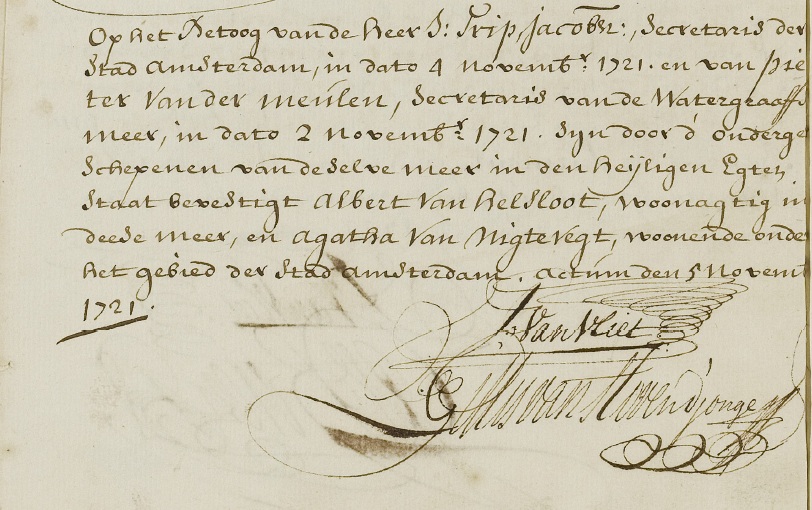 Op het Betoog van de Heer J: Trip, Jacobsz:, Secretaris der
Stad Amsterdam, in dato 4 novemb:r 1721. en van pie
ter Van der meulen, Secretaris van de Watergraaffs
meer, in dato 2 novemb:r 1721. Sijn door d' onderge
Schepenen van deselve meer in den Heijligen Egten
Staat bevestigt Albert Van Helsloot, woonagtig in
deese meer, en Agatha Van Nigtevegt, woonende onder
het gebied der Stad Amsterdam. Actum den 5 Novem
1721.
Van Vliet
van d' jonge